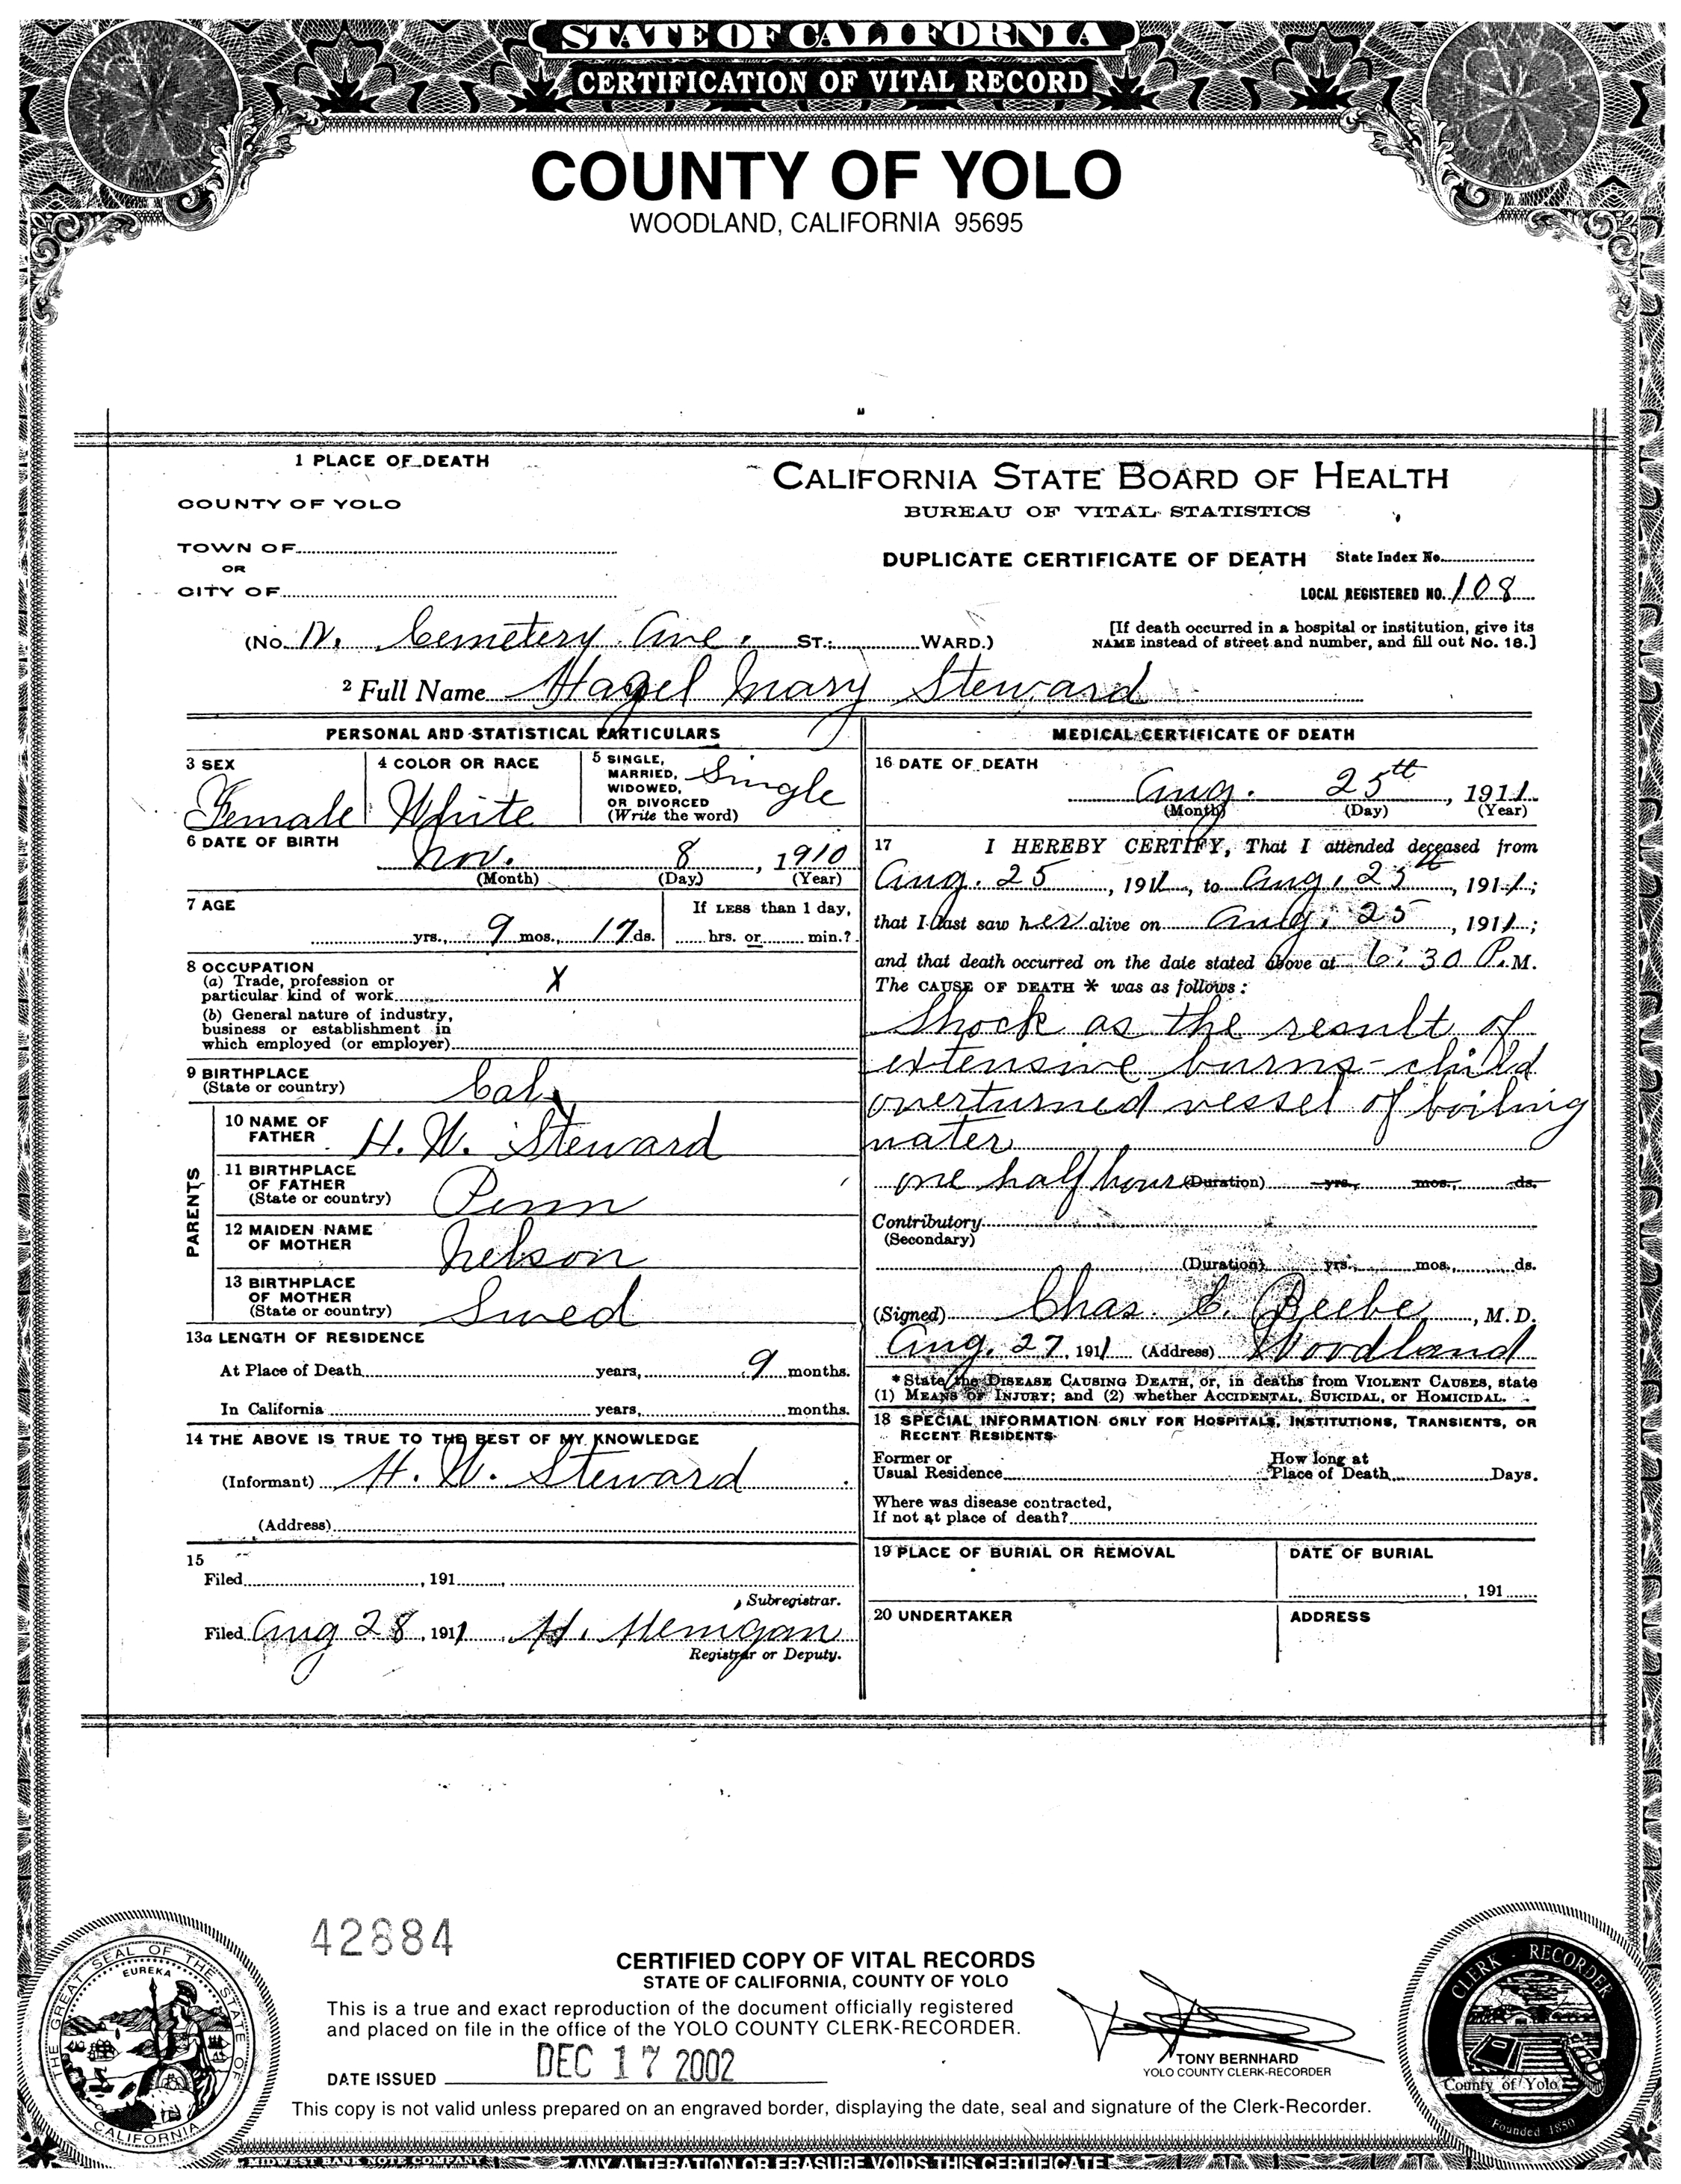 STATE OF CALIFORNIA
CERTIFICATION OF VITAL RECORD
COUNTY OF YOLO
WOODLAND, CALIFORNIA 95695
1 PLACE OF DEATH
COUNTY OF YOLO
TOWN OF
OR
CITY OF
CALIFORNIA STATE BOARD OF HEALTH
BUREAU OF VITAL STATISTICS
DUPLICATE CERTIFICATE OF DEATH State Index No.
LOCAL REGISTERED NO. 108
(No. N. Cemetery Ave. ST.; WARD.)
[If death occurred in a hospital or institution, give its
NAME instead of street and number, and fill out No. 18.]
2 Full Name Hazel Mary Steward
PERSONAL AND STATISTICAL PARTICULARS
3 SEX
Female
4 COLOR OR RACE
White
5 SINGLE,
MARRIED,
WIDOWED,
OR DIVORCED
(Write the word)
Single
6 DATE OF BIRTH
Nov. 8, 1910
(Month) (Day) (Year)
7 AGE
yrs., 9 mos., 17 ds.
If LESS than 1 day,
hrs. or min.?
8 OCCUPATION
(a) Trade, profession or
particular kind of work X
(b) General nature of industry,
business or establishment in
which employed (or employer)
9 BIRTHPLACE
(State or country) Cal.
PARENTS
10 NAME OF
FATHER H. W. Steward
11 BIRTHPLACE
OF FATHER
(State or country) Penn
12 MAIDEN NAME
OF MOTHER Nelson
13 BIRTHPLACE
OF MOTHER
(State or country) Swed
13a LENGTH OF RESIDENCE
At Place of Death years, 9 months.
In California years, months.
14 THE ABOVE IS TRUE TO THE BEST OF MY KNOWLEDGE
(Informant) H. W. Steward
(Address)
15
Filed , 191 ,
Subregistrar.
Filed Aug 28, 1911, H. Menigan
Registrar or Deputy.
MEDICAL CERTIFICATE OF DEATH
16 DATE OF DEATH
Aug. 25th, 1911
(Month) (Day) (Year)
17 I HEREBY CERTIFY, That I attended deceased from
Aug. 25, 1911, to Aug. 25th, 1911;
that I last saw her alive on Aug. 25, 1911;
and that death occurred on the date stated above at 6:30 P.M.
The CAUSE OF DEATH * was as follows:
Shock as the result of
extensive burns-child
overturned vessel of boiling
water
one half hour (Duration) yrs., mos., ds.
Contributory
(Secondary)
(Duration) yrs., mos., ds.
(Signed) Chas. E. Beebe, M.D.
Aug. 27, 1911 (Address) Woodland
* State the DISEASE CAUSING DEATH, or, in deaths from VIOLENT CAUSES, state
(1) MEANS OF INJURY; and (2) whether ACCIDENTAL, SUICIDAL, OR HOMICIDAL.
18 SPECIAL INFORMATION ONLY FOR HOSPITALS, INSTITUTIONS, TRANSIENTS, OR
RECENT RESIDENTS
Former or
Usual Residence
How long at
Place of Death Days.
Where was disease contracted,
If not at place of death?
19 PLACE OF BURIAL OR REMOVAL
DATE OF BURIAL
, 191
20 UNDERTAKER
ADDRESS
42684
CERTIFIED COPY OF VITAL RECORDS
STATE OF CALIFORNIA, COUNTY OF YOLO
This is a true and exact reproduction of the document officially registered
and placed on file in the office of the YOLO COUNTY CLERK-RECORDER.
DATE ISSUED DEC 17 2002
TONY BERNHARD
YOLO COUNTY CLERK-RECORDER
This copy is not valid unless prepared on an engraved border, displaying the date, seal and signature of the Clerk-Recorder.
THE GREAT SEAL OF THE STATE OF CALIFORNIA
EUREKA
CLERK - RECORDER
County of Yolo
Founded 1850
MIDWEST BANK NOTE COMPANY
ANY ALTERATION OR ERASURE VOIDS THIS CERTIFICATE